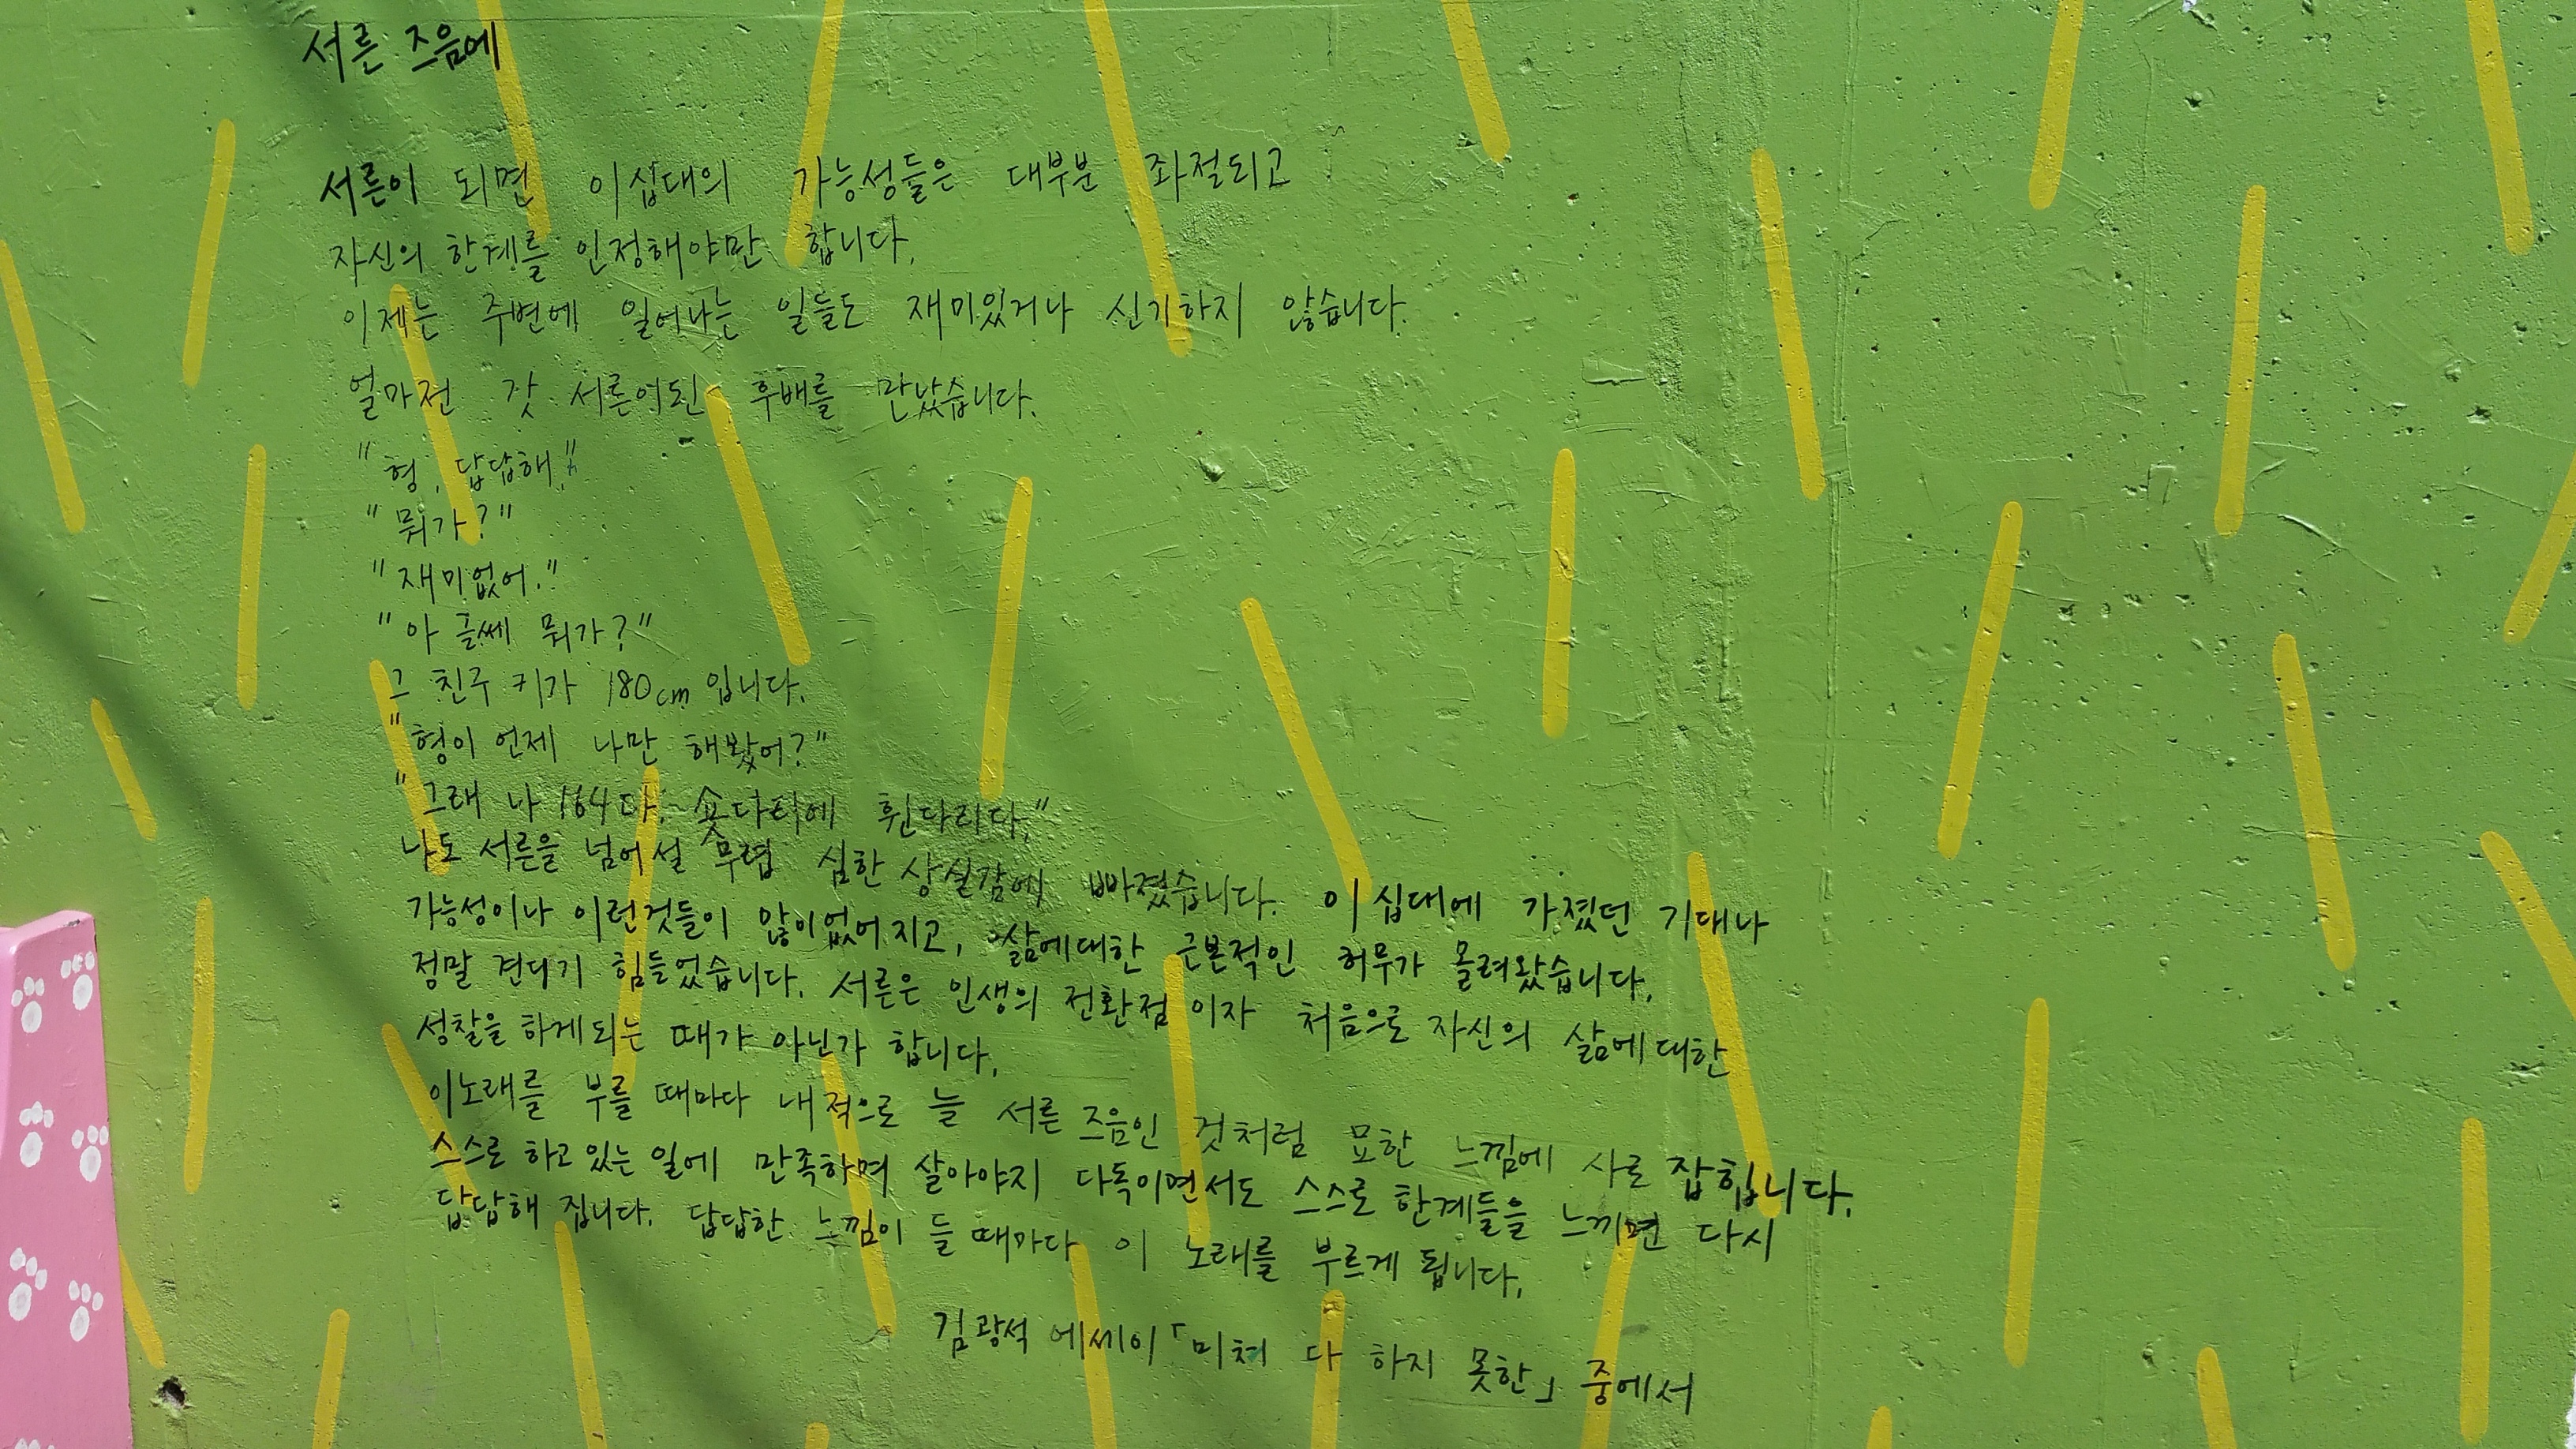 서른 즈음에
서른이 되면 이십대의 가능성들은 대부분 좌절되고
자신의 한계를 인정해야만 합니다.
이제는 주변에 일어나는 일들도 재미있거나 신기하지 않습니다.
얼마전 갓 서른이된 후배를 만났습니다.
"형, 답답해."
"뭐가?"
"재미없어."
"아 글쎄 뭐가?"
그 친구 키가 180cm입니다.
"형이 언제 나만 해봤어?"
"그래 나 164다. 숏다리에 휜다리다."
나도 서른을 넘어설 무렵 심한 상실감에 빠졌습니다. 이십대에 가졌던 기대나
가능성이나 이런것들이 많이없어지고, 삶에대한 근본적인 허무가 몰려왔습니다.
정말 견디기 힘들었습니다. 서른은 인생의 전환점이자 처음으로 자신의 삶에대한
성찰을 하게되는 때가 아닌가 합니다.
이노래를 부를 때마다 내적으로 늘 서른 즈음인 것처럼 묘한 느낌에 사로잡힙니다.
스스로 하고 있는 일에 만족하며 살아야지 다독이면서도 스스로 한계들을 느끼면 다시
답답해 집니다. 답답한 느낌이 들 때마다 이 노래를 부르게 됩니다.
김광석 에세이「미처 다 하지 못한」중에서